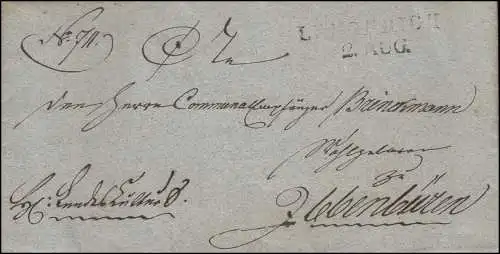 No 74.
LENGERICH
2. AUG.
Den Herrn Communalempfänger Brinckmann
Wohlgeboren
zu
Ibbenbüren